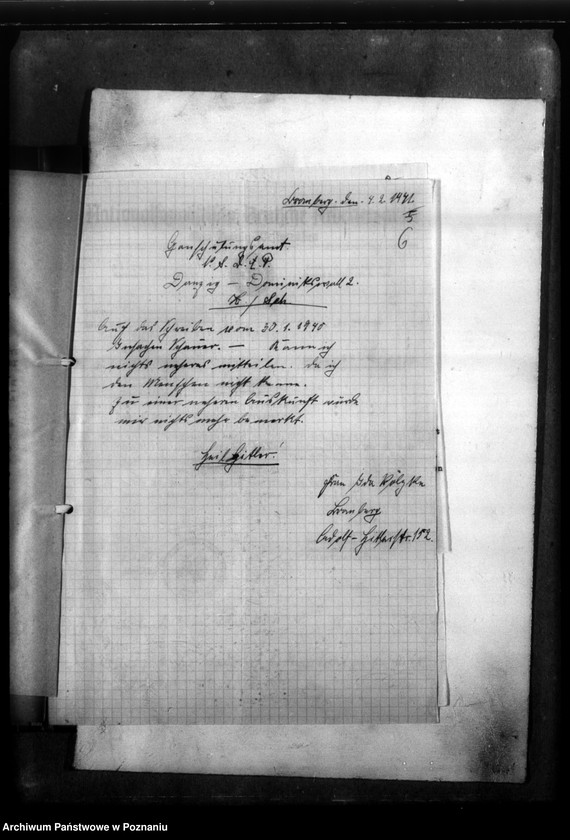 Bromberg. den. 4.2.1941.
5
6
Gauschulungsamt.
N.S.D.A.P.
Danzig – Dominikswall 2.
K / Sch
Auf das Schreiben vom 30.1.1940
Insachen Schauer. – Kann ich
nichts neheres mitteilen. da ich
den Menschen nicht kenne.
zu einer neheren Auskunft würde
mir nichts mehr bemerkt.
Heil Hitler!
Frau Ida
Bromberg
Adolf-Hitlerstr. 152.
Archiwum Państwowe w Poznaniu